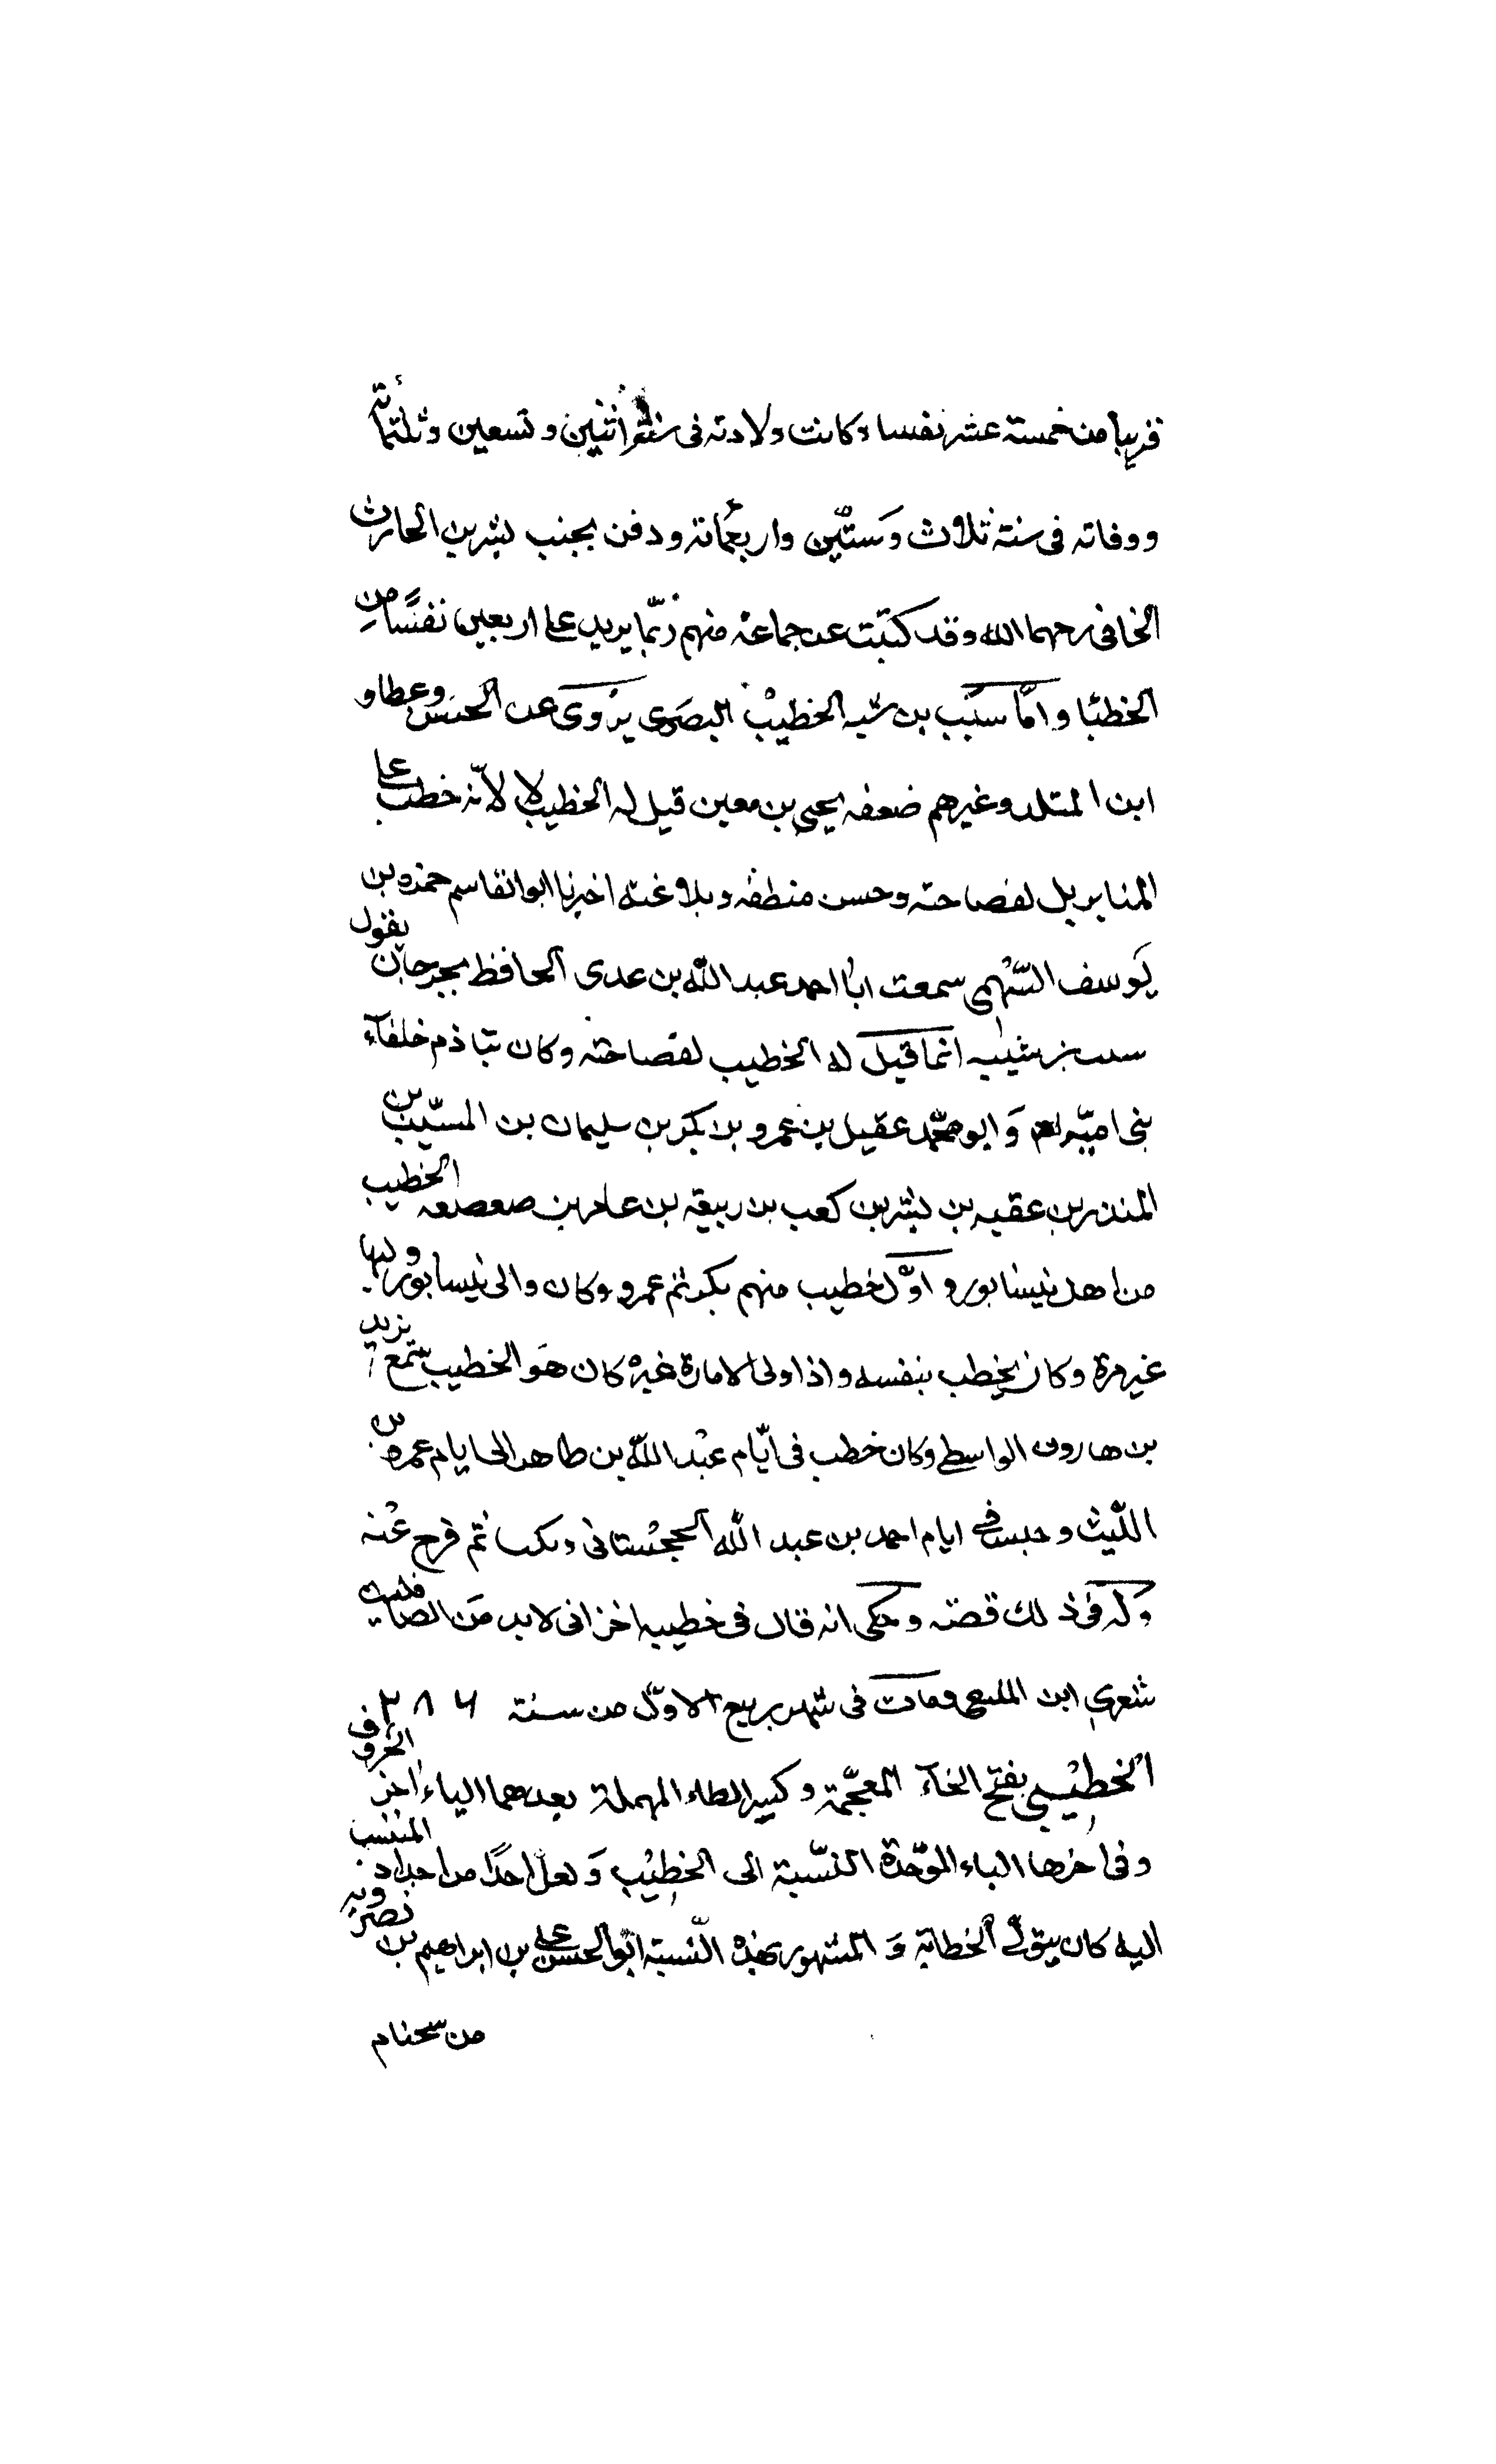 قريبا من خمسة عشر نفسا وكانت ولادته فى سنة اثنين وتسعين وثلثمائة
ووفاته فى سنة ثلاث وستّين واربعمائة ودفن بجنب بشر بن الحارث
الخافى رحمهما الله وقد كتبت عن جماعة منهم ربّما يزيد على اربعين نفسًا من
الخطبا وامّا بن شيبه الخطيب البصرى يروى عن الحسن وعطاو
ابن وغيرهم ضعفه يحيى بن معين قيل له الخطيب لا لانّه خطب على
المنابر بل لفصاحته وحسن منطقه وبلاغته اخبرنا ابوالقاسم حمزه بن
يوسف السّهمى سمعت ابا احمد عبد الله بن عدى الحافظ بجرجان يقول
انما قيل له الخطيب لفصاحته وكان خلفآء
بنى اميّه وابو محمّد عقيل بن عمرو بن بكر بن سليمان بن المسيّب بن
المنذر بن عقبه بن بشر بن كعب بن ربيعة بن عامر بن صعصعه الخطيب
من اهل نيسابور واوّل خطيب منهم بكر ثم عمرو وكان والى نيسابور وليها
غير مرة وكان يخطب بنفسه واذا ولى الامارة غيره كان هو الخطيب سمع يزيد
بن هارون الواسطى وكان خطب فى ايّام عبد الله بن طاهر الى ايام عمرو بن
اللّيث وحبس فى ايام احمد بن عبد الله الحجستانى ثم فرج عنه
وله فى ذلك قصة وحكى انه قال فى خطبيه اخزانى لابد من
شعري ابن ومات فى شهر ربيع الاوّل من سنة ٣٨٦
الخطيبى بفتح الخآء المعجّمة وكسر الطاء المهملة بعدهما الياء اخر الحروف
وفى اخرها الباء الموّحدة النسّبة الى الخطيب ولعل احدًا من اجداد المنتسب
اليه كان يتولّى الخطابة والمشهور بهذه النّسبة ابو الحسن على بن ابراهيم بن نصرويه
من سختام